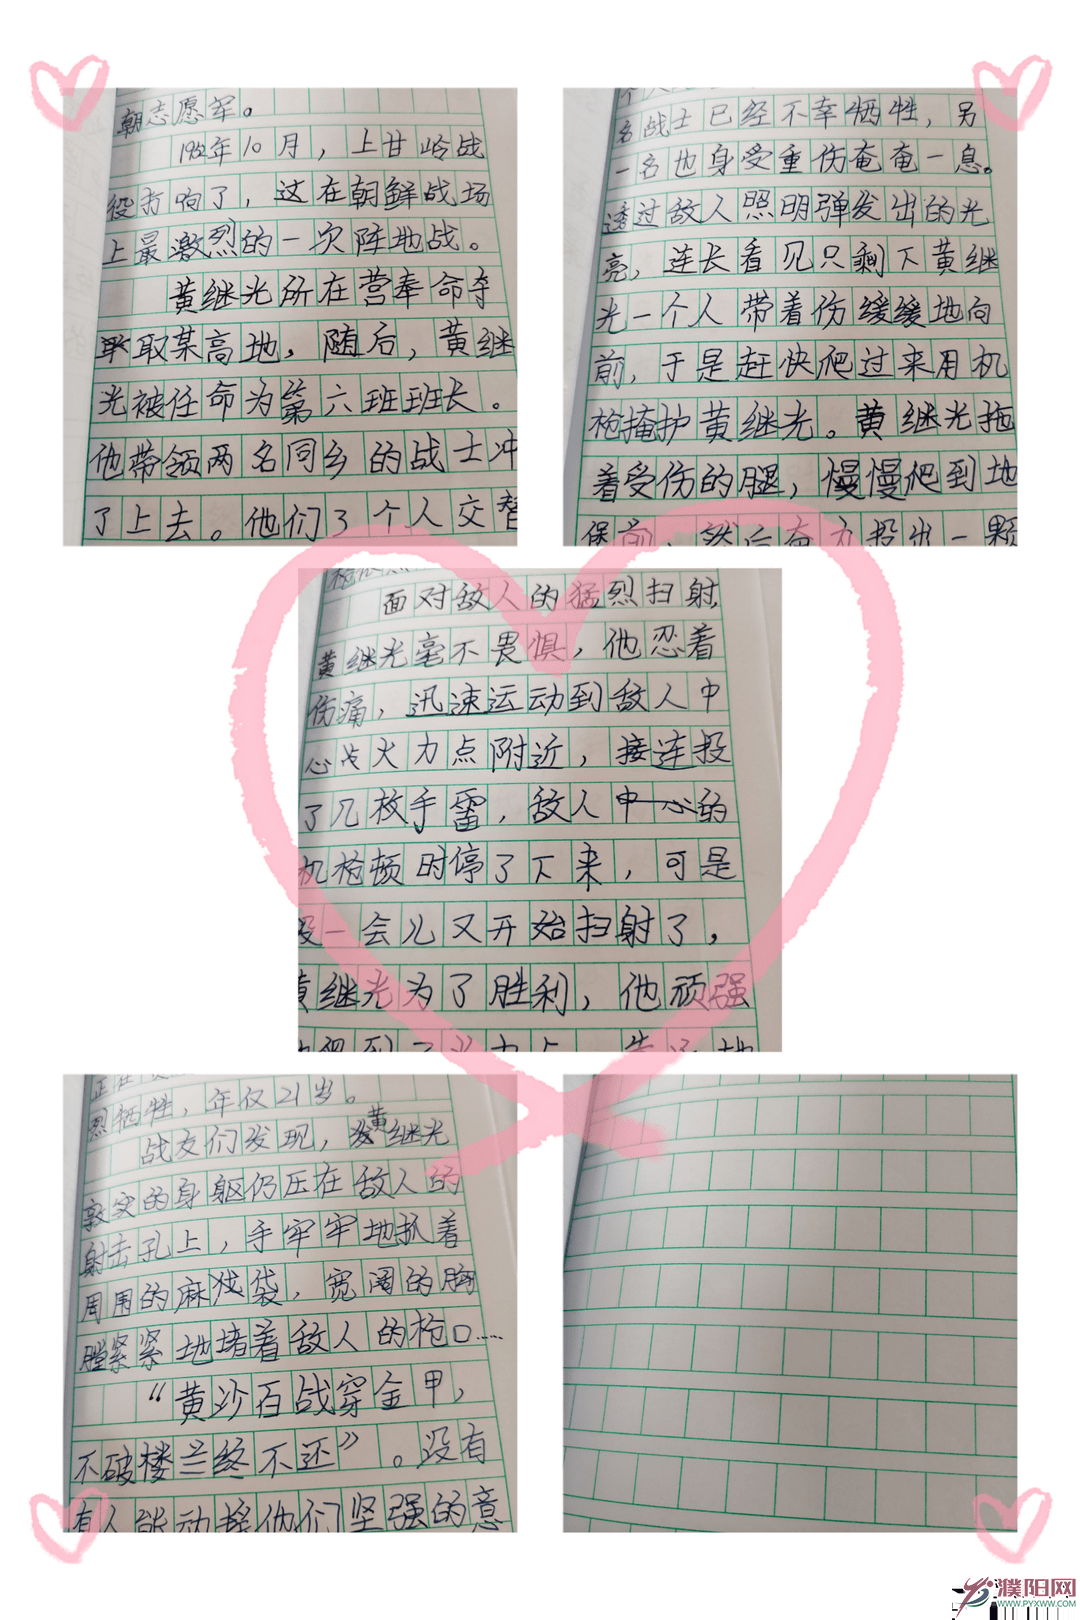 朝志愿军。
1952年10月，上甘岭战
役打响了，这在朝鲜战场
上最激烈的一次阵地战。
黄继光所在营奉命夺
取某高地，随后，黄继
光被任命为第六班班长。
他带领两名同乡的战士冲
了上去。他们3个人交替
名战士已经不幸牺牲，另
一名也身受重伤奄奄一息。
透过敌人照明弹发出的光
亮，连长看见只剩下黄继
光一个人带着伤缓缓地向
前，于是赶快爬过来用机
枪掩护黄继光。黄继光拖
着受伤的腿，慢慢爬到地
保前，然后奋力投出一颗
面对敌人的猛烈扫射，
黄继光毫不畏惧，他忍着
伤痛，迅速运动到敌人中
心火力点附近，接连投
了几枚手雷，敌人中心的
机枪顿时停了下来，可是
没一会儿又开始扫射了，
黄继光为了胜利，他顽强
烈牺牲，年仅21岁。
战友们发现，黄继光
敦实的身躯仍压在敌人的
射击孔上，手牢牢地扒着
周围的麻袋，宽阔的胸
膛紧紧地堵着敌人的枪口……
“黄沙百战穿金甲，
不破楼兰终不还”。没有
有人能动摇他们坚强的意
濮阳网
WWW.PYXWW.COM